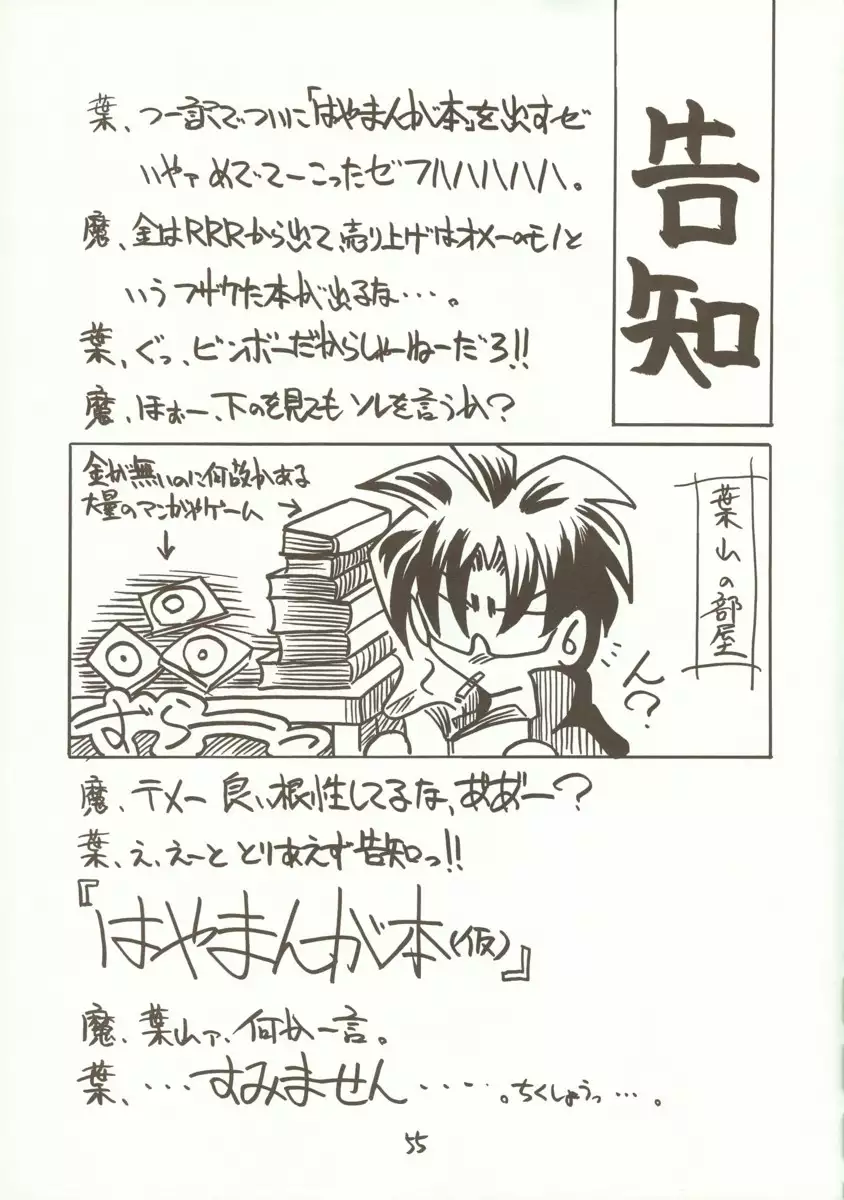 告知
葉、つー訳でついに「はやまんが本」を出すゼ
いやァめでてーこったゼフハハハハハハ。
魔、金はRRRから出て、売り上げはオメーのモノと
いうフザケた本が出るな・・・。
葉、ぐっ、ビンボーだからしゃーねーだろ!!
魔、ほぉー、下のを見てもソレを言うか?
金が無いのに何故かある
大量のマンガやゲーム→
↓
葉山の部屋
ん?
ずらーっ
魔、テメー良い根性してるな、ああ゛ー?
葉、え、えーと とりあえず告知っ!!
『はやまんが本(仮)』
魔、葉山ァ、何か一言。
葉、・・・すみません・・・・。ちくしょうっ・・・。
55